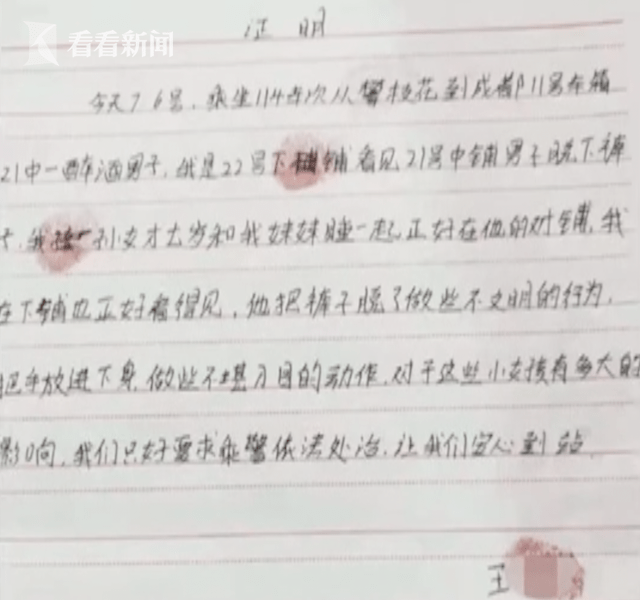 看看新闻
证明
今天7.6号，乘坐114车次从攀枝花到成都11号车箱
21中一醉酒男子，我是22号下铺看见21号中铺男子脱下裤
子，我孙女才七岁和我妹妹睡一起正好在他的对铺，我
在下铺也正好看得见，他把裤子脱了做些不文明的行为，
把手放进下身，做些不堪入目的动作，对于这些小女孩有多大的
影响，我们只好要求乘警依法处治，让我们安心到站
王